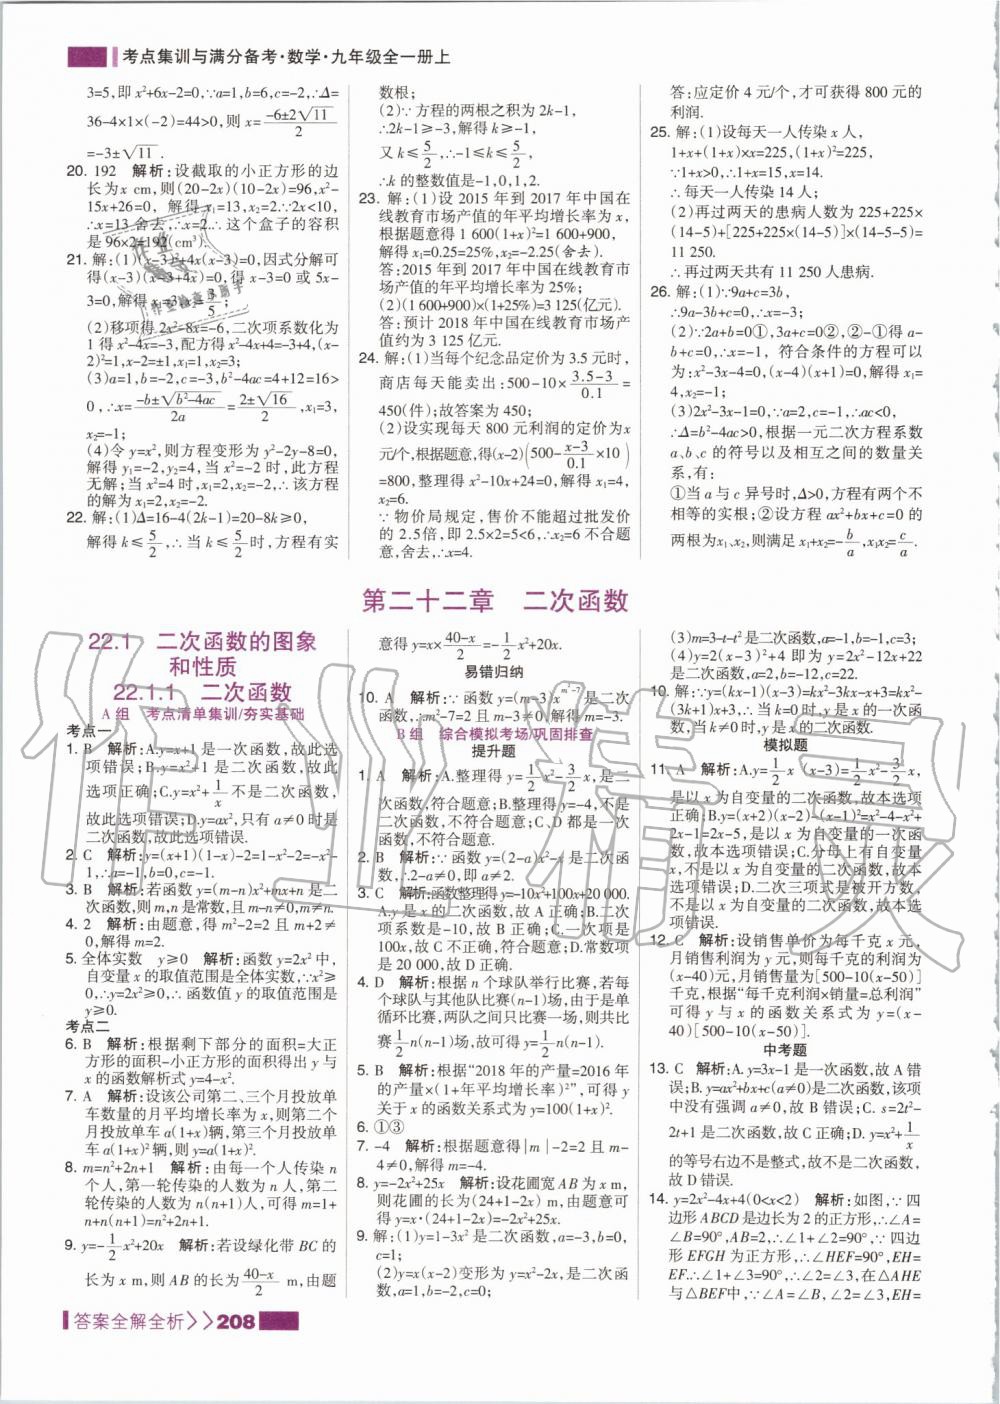 考点集训与满分备考·数学·九年级全一册上
3=5,即x²+6x-2=0,∵a=1,b=6,c=-2,∴Δ=
36-4×1×(-2)=44>0,则x=(-6±2√11)/2
=-3±√11.
20. 192 解析:设截取的小正方形的边
长为x cm,则(20-2x)(10-2x)=96,x²-
15x+26=0,解得x₁=13,x₂=2.∵2x<10,
∴x=13舍去,∴x=2.∴这个盒子的容积
是96×2=192(cm³).
21. 解:(1)(x-3)²+4x(x-3)=0,因式分解可
得(x-3)(x-3+4x)=0,得x-3=0或5x-
3=0,解得x₁=3,x₂=3/5;
(2)移项得2x²-8x=-6,二次项系数化为
1得x²-4x=-3,配方得x²-4x+4=-3+4,(x-
2)²=1,x-2=±1,x₁=1,x₂=3;
(3)a=1,b=-2,c=-3,b²-4ac=4+12=16>
0,∴x=(-b±√(b²-4ac))/2a=(2±√16)/2,x₁=3,
x₂=-1;
(4)令y=x²,则方程变形为y²-2y-8=0,
解得y₁=-2,y₂=4,当x²=-2时,此方程
无解;当x²=4时,x₁=2,x₂=-2,∴该方程
的解为x₁=2,x₂=-2.
22. 解:(1)Δ=16-4(2k-1)=20-8k≥0,
解得k≤5/2,∴当k≤5/2时,方程有实
数根;
(2)∵方程的两根之积为2k-1,
∴2k-1≥-3,解得k≥-1,
又k≤5/2,∴-1≤k≤5/2,
∴k的整数值是-1,0,1,2.
23. 解:(1)设2015年到2017年中国在
线教育市场产值的年平均增长率为x,
根据题意得1 600(1+x)²=1 600+900,
解得x₁=0.25=25%,x₂=-2.25(舍去).
答:2015年到2017年中国在线教育市
场产值的年平均增长率为25%;
(2)(1 600+900)×(1+25%)=3 125(亿元).
答:预计2018年中国在线教育市场产
值约为3 125亿元.
24. 解:(1)当每个纪念品定价为3.5元时,
商店每天能卖出:500-10×(3.5-3)/0.1=
450(件);故答案为450;
(2)设实现每天800元利润的定价为x
元/个,根据题意,得(x-2)(500-(x-3)/0.1×10)
=800,整理得x²-10x+24=0,解得x₁=4,
x₂=6.
∵物价局规定,售价不能超过批发价
的2.5倍,即2.5×2=5<6,∴x₂=6不合题
意,舍去,∴x=4.
答:应定价4元/个,才可获得800元的
利润.
25. 解:(1)设每天一人传染x人,
1+x+(1+x)×x=225,(1+x)²=225,
∵1+x>0,∴1+x=15,x=14.
∴每天一人传染14人;
(2)再过两天的患病人数为225+225×
(14-5)+[225+225×(14-5)]×(14-5-5)=
11 250.
∴再过两天共有11 250人患病.
26. 解:(1)∵9a+c=3b,
∴9a-3b+c=0,∴x=-3;
(2)∵2a+b=0①,3a+c=0②,②-①得a-
b+c=0,∴x=-1,符合条件的方程可以
为:x²-3x-4=0,(x-4)(x+1)=0,解得x₁=
4,x₂=-1;
(3)2x²-3x-1=0,∵a=2,c=-1,∴ac<0,
∴Δ=b²-4ac>0,根据一元二次方程系数
a、b、c的符号以及相互之间的数量关
系,有:
①当a与c异号时,Δ>0,方程有两个不
相等的实根;②设方程ax²+bx+c=0的
两根为x₁、x₂,则满足x₁+x₂=-b/a,x₁x₂=c/a.
第二十二章 二次函数
22.1 二次函数的图象
和性质
22.1.1 二次函数
A组 考点清单集训/夯实基础
考点一
1. B 解析:A.y=x+1是一次函数,故此选
项错误;B.y=x²+1是二次函数,故此
选项正确;C.y=x²+1/x不是二次函数,
故此选项错误;D.y=ax²,只有a≠0时是
二次函数,故此选项错误.
2. C 解析:y=(x+1)(1-x)-2=1-x²-2=-x²-
1,∴a=-1,b=0,c=-1.
3. B 解析:若函数y=(m-n)x²+mx+n是二
次函数,则m,n是常数,且m-n≠0,m≠n.
4. 2 解析:由题意,得m²-2=2且m+2≠
0,解得m=2.
5. 全体实数 y≥0 解析:函数y=2x²中,
自变量x的取值范围是全体实数,∵x²≥
0,∴y=2x²≥0,∴函数值y的取值范围是
y≥0.
考点二
6. B 解析:根据剩下部分的面积=大正
方形的面积-小正方形的面积得出y与
x的函数解析式y=4-x².
7. A 解析:设该公司第二、三个月投放单
车数量的月平均增长率为x,则第二个
月投放单车a(1+x)辆,第三个月投放单
车a(1+x)²辆,则y=a(1+x)².
8. m=n²+2n+1 解析:由每一个人传染n
个人,第一轮传染的人数为n人,第二
轮传染的人数为n(n+1)人,可得m=1+
n+n(n+1)=n²+2n+1.
9. y=-1/2x²+20x 解析:若设绿化带BC的
长为x m,则AB的长为(40-x)/2 m,由题
意得y=x×(40-x)/2=-1/2x²+20x.
易错归纳
10. A 解析:∵函数y=(m-3)x^(m²-7)是二次
函数,∴m²-7=2且m-3≠0,解得m=-3.
B组 综合模拟考场/巩固排查
提升题
1. A 解析:A.整理得y=1/2x²-3/2x,是二
次函数,符合题意;B.整理得y=-4,不是
二次函数,不符合题意;C、D都是一次
函数,不符合题意.
2. B 解析:∵函数y=(2-a)x²-x是二次函
数,∴2-a≠0,即a≠2.
3. C 解析:函数整理得y=-10x²+100x+20 000.
A.y是x的二次函数,故A正确;B.二次
项系数是-10,故B正确;C.一次项是
100x,故C不正确,符合题意;D.常数项
是20 000,故D正确.
4. D 解析:根据n个球队举行比赛,若每
个球队与其他队比赛(n-1)场,由于是单
循环比赛,两队之间只比赛一场,则共比
赛1/2n(n-1)场,故可得m=1/2n(n-1).
5. B 解析:根据“2018年的产量=2016年
的产量×(1+年平均增长率)²”,可得y
关于x的函数关系式为y=100(1+x)².
6. ①③
7. -4 解析:根据题意得|m|-2=2且m-
4≠0,解得m=-4.
8. y=-2x²+25x 解析:设花圃宽AB为x m,
则花圃的长为(24+1-2x) m,由题意可
得y=x·(24+1-2x)=-2x²+25x.
9. 解:(1)y=1-3x²是二次函数,a=-3,b=0,
c=1;
(2)y=x(x-2)变形为y=x²-2x,是二次函
数,a=1,b=-2,c=0;
(3)m=3-t-t²是二次函数,a=-1,b=-1,c=3;
(4)y=2(x-3)²+4即为y=2x²-12x+22
是二次函数,a=2,b=-12,c=22.
10. 解:∵y=(kx-1)(x-3)=kx²-3kx-x+3=kx²-
(3k+1)x+3,∴当k=0时,y是x的一次函
数,当k≠0时,y是x的二次函数.
模拟题
11. A 解析:A.y=1/2x(x-3)=1/2x²-3/2x,
是以x为自变量的二次函数,故本选项
正确;B.y=(x+2)(x-2)-(x-1)²=x²-4-x²+
2x-1=2x-5,是以x为自变量的一次函
数,故本选项错误;C.分母上有自变量
x,不是以x为自变量的二次函数,故本
选项错误;D.二次三项式是被开方数,
不是以x为自变量的二次函数,故本选
项错误.
12. C 解析:设销售单价为每千克x元,
月销售利润为y元,则每千克的利润为
(x-40)元,月销售量为[500-10(x-50)]
千克,根据“每千克利润×销量=总利润”
可得y与x的函数关系式为y=(x-
40)[500-10(x-50)].
中考题
13. C 解析:A.y=3x-1是一次函数,故A错
误;B.y=ax²+bx+c(a≠0)是二次函数,该项
中没有强调a≠0,故B错误;C.s=2t²-
2t+1是二次函数,故C正确;D.y=x²+1/x
的等号右边不是整式,故不是二次函数,
故D错误.
14. y=2x²-4x+4(0<x<2) 解析:如图,∵四
边形ABCD是边长为2的正方形,∴∠A=
∠B=90°,AB=2.∴∠1+∠2=90°,∵四边
形EFGH为正方形,∴∠HEF=90°,EH=
EF.∴∠1+∠3=90°,∴∠2=∠3,在△AHE
与△BEF中,∵∠A=∠B,∠2=∠3,EH=
答案全解全析>>208
作业精灵